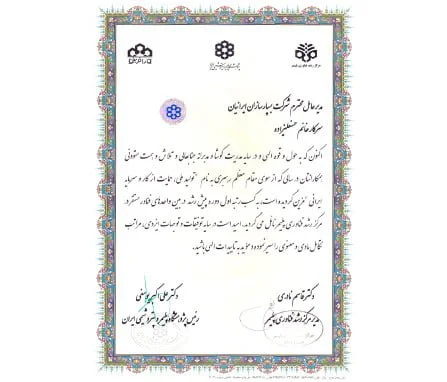 مدیرعامل محترم شرکت بهپارسازان ایرانیان
سرکار خانم
اکنون که به حول و قوه الهی و در سایه مدیریت کوشا و مدبرانه جنابعالی و تلاش و همت ستودنی
همکارانتان در سالی که از سوی مقام معظم رهبری به نام "تولید ملی، حمایت از کار و سرمایه
ایرانی" مزین گردیده است، به کسب رتبه اول دوره پیش رشد در بین واحدهای فناور مستقر در
مرکز رشد فناوری پلیمر نائل می گردید، امید است در سایه توفیقات و توجهات ایزدی، مراتب
تکامل مادی و معنوی را سپر نموده و موید به تاییدات الهی باشید.
دکتر قاسم نادری
مدیر مرکز رشد فناوری پلیمر
دکتر علی اکبر یوسفی
رئیس پژوهشگاه پلیمر و پتروشیمی ایران